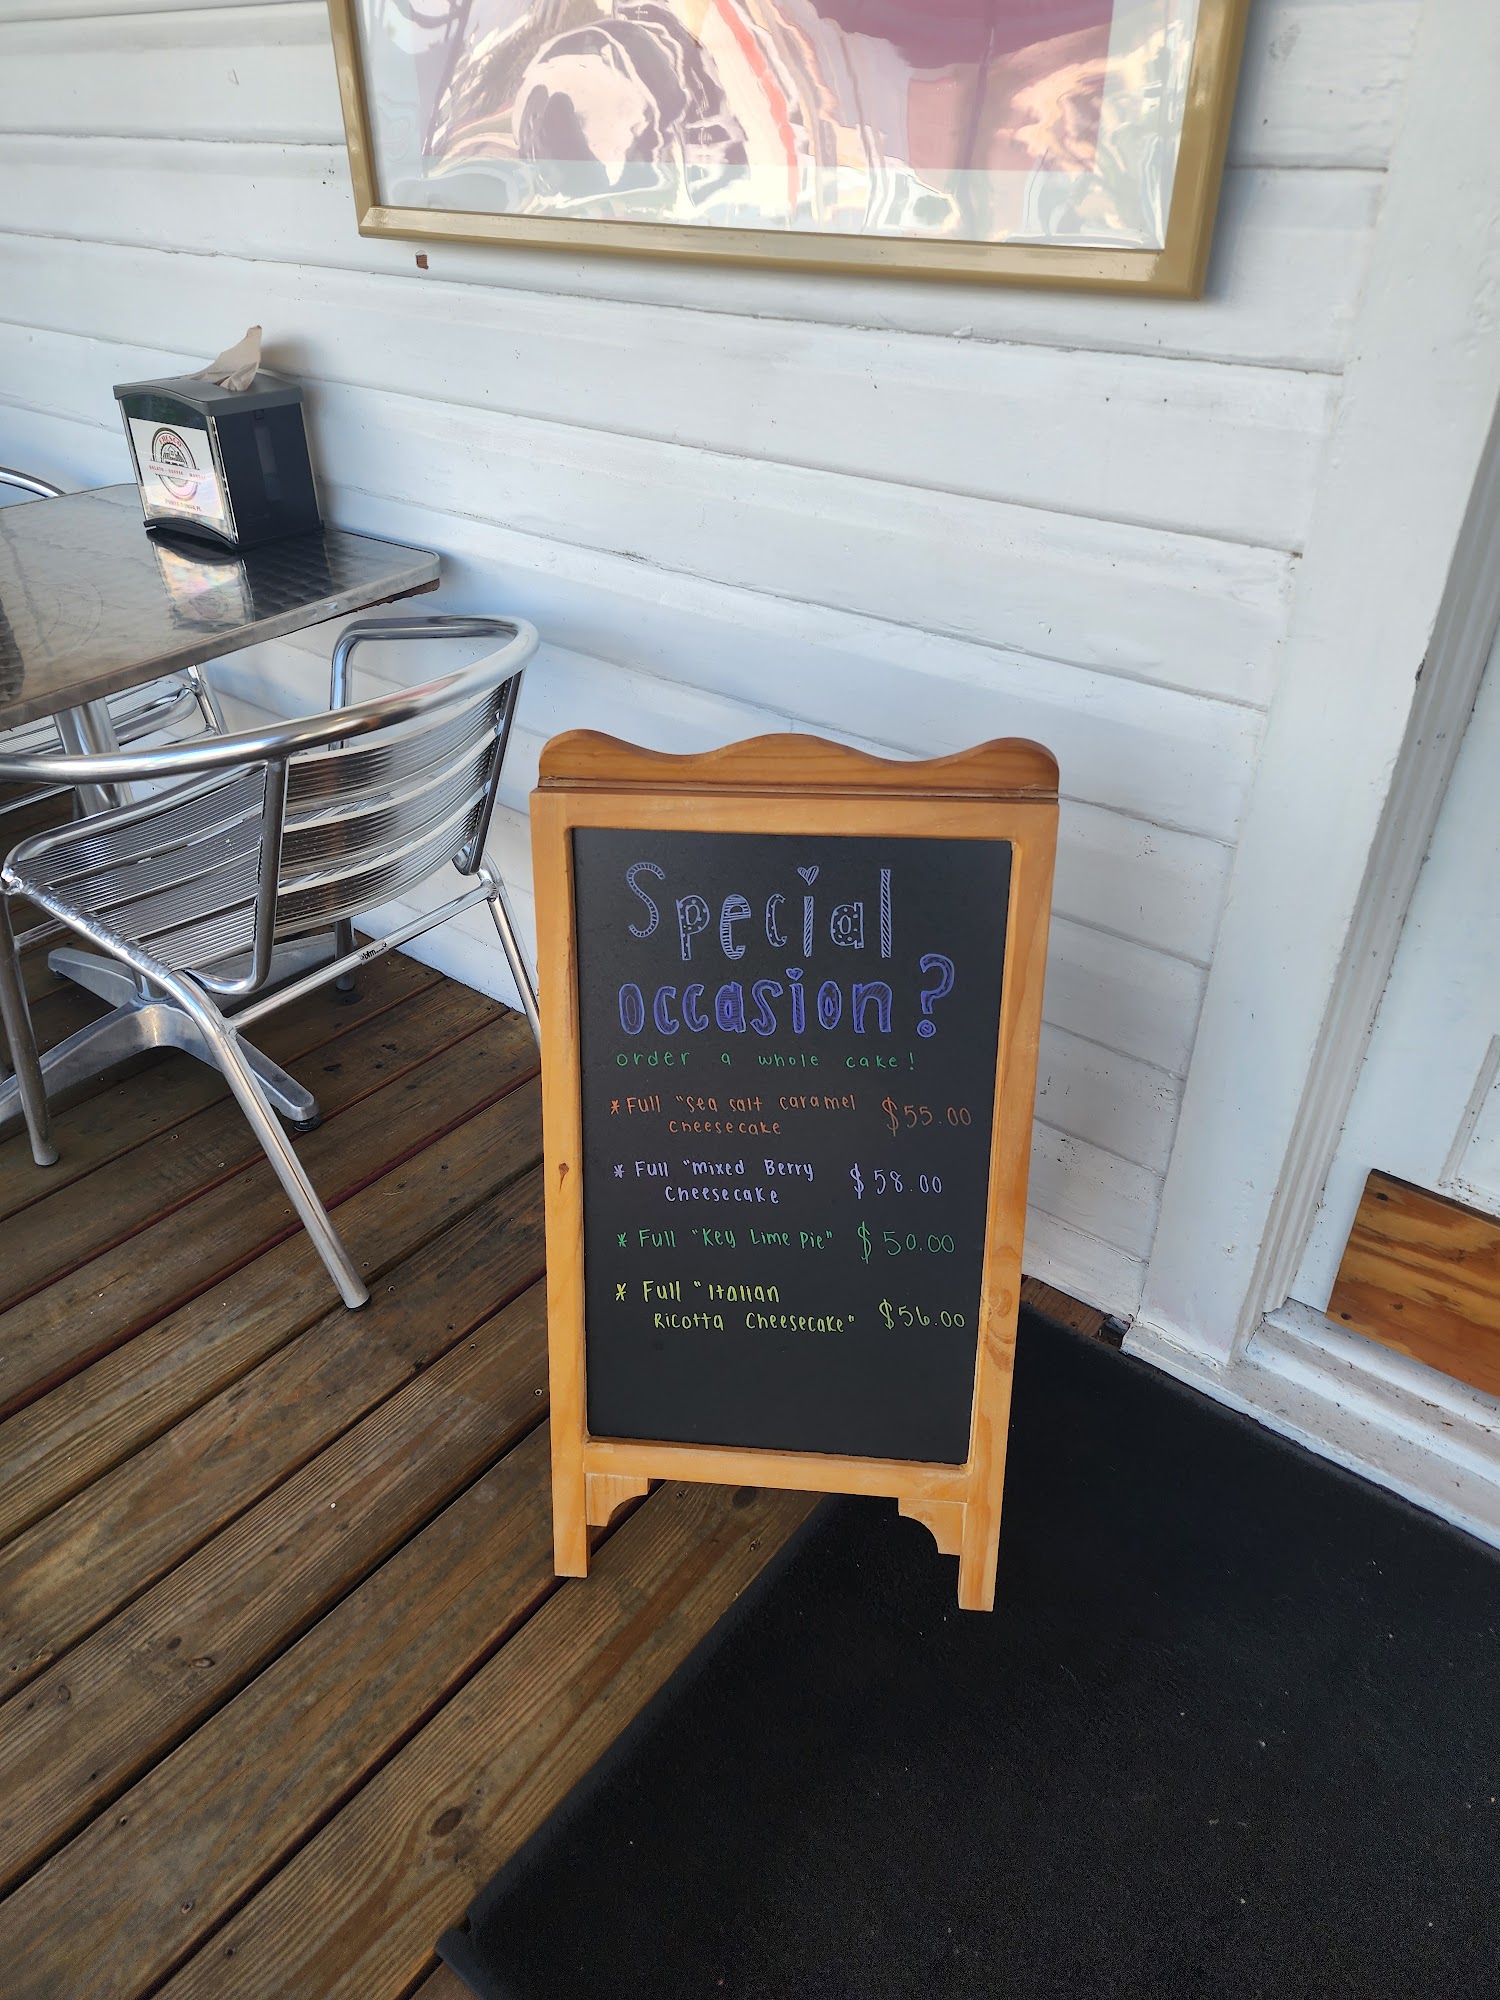 FRESCO
GELATO · COFFEE · MARKET
Special
occasion?
order a whole cake!
*Full "sea salt caramel $55.00
cheesecake
* Full "mixed Berry $58.00
Cheesecake
* Full "Key Lime Pie" $50.00
* Full "Italian
Ricotta Cheesecake" $56.00